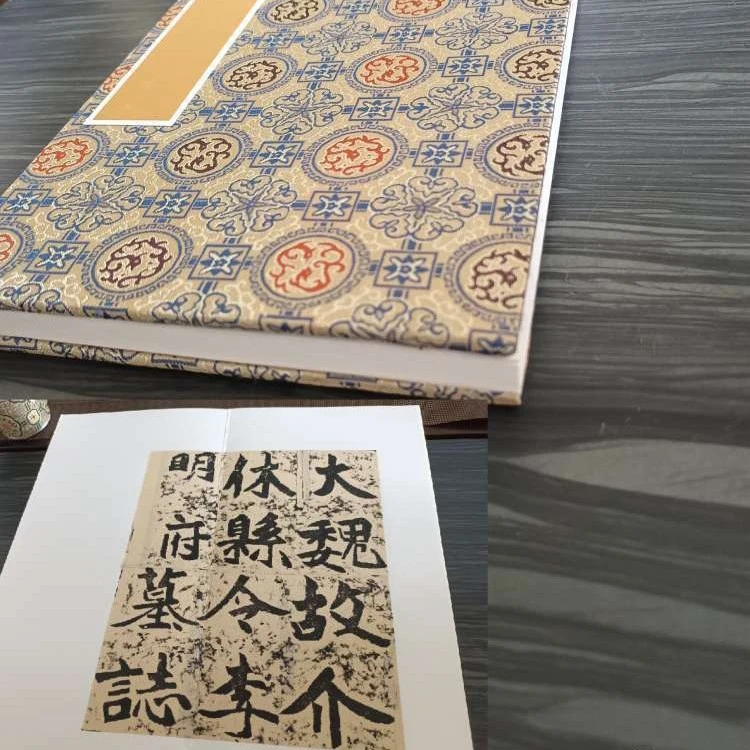 大魏故介
休縣令李
明府墓誌